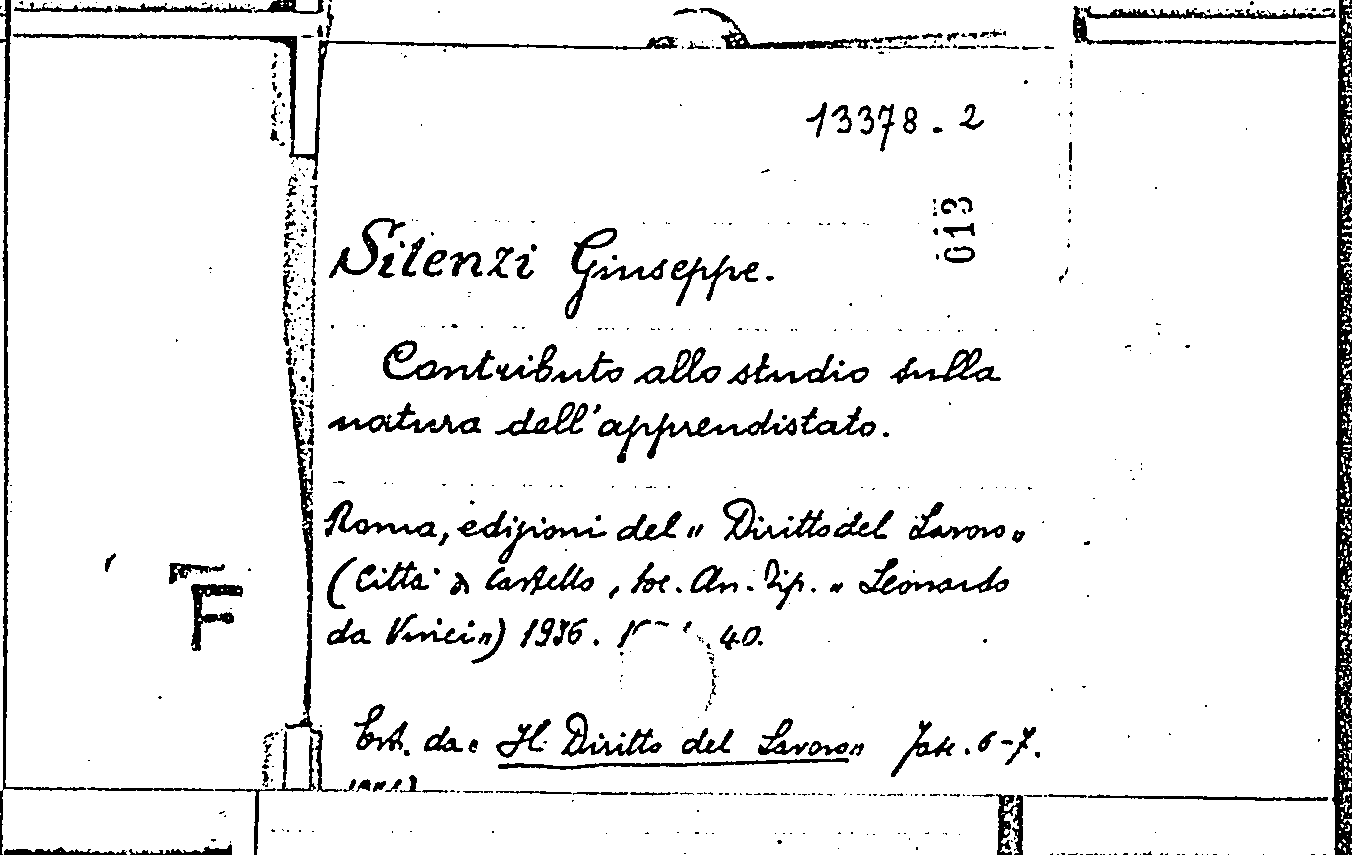 13378.2
013
Silenzi Giuseppe.
Contributo allo studio sulla
natura dell'apprendistato.
Roma, edizioni del "Diritto del Lavoro"
(Città di Castello, Soc. An. Tip. "Leonardo
da Vinci") 1936. 40.
F
Est. da: Il Diritto del Lavoro" Fasc. 6-7.